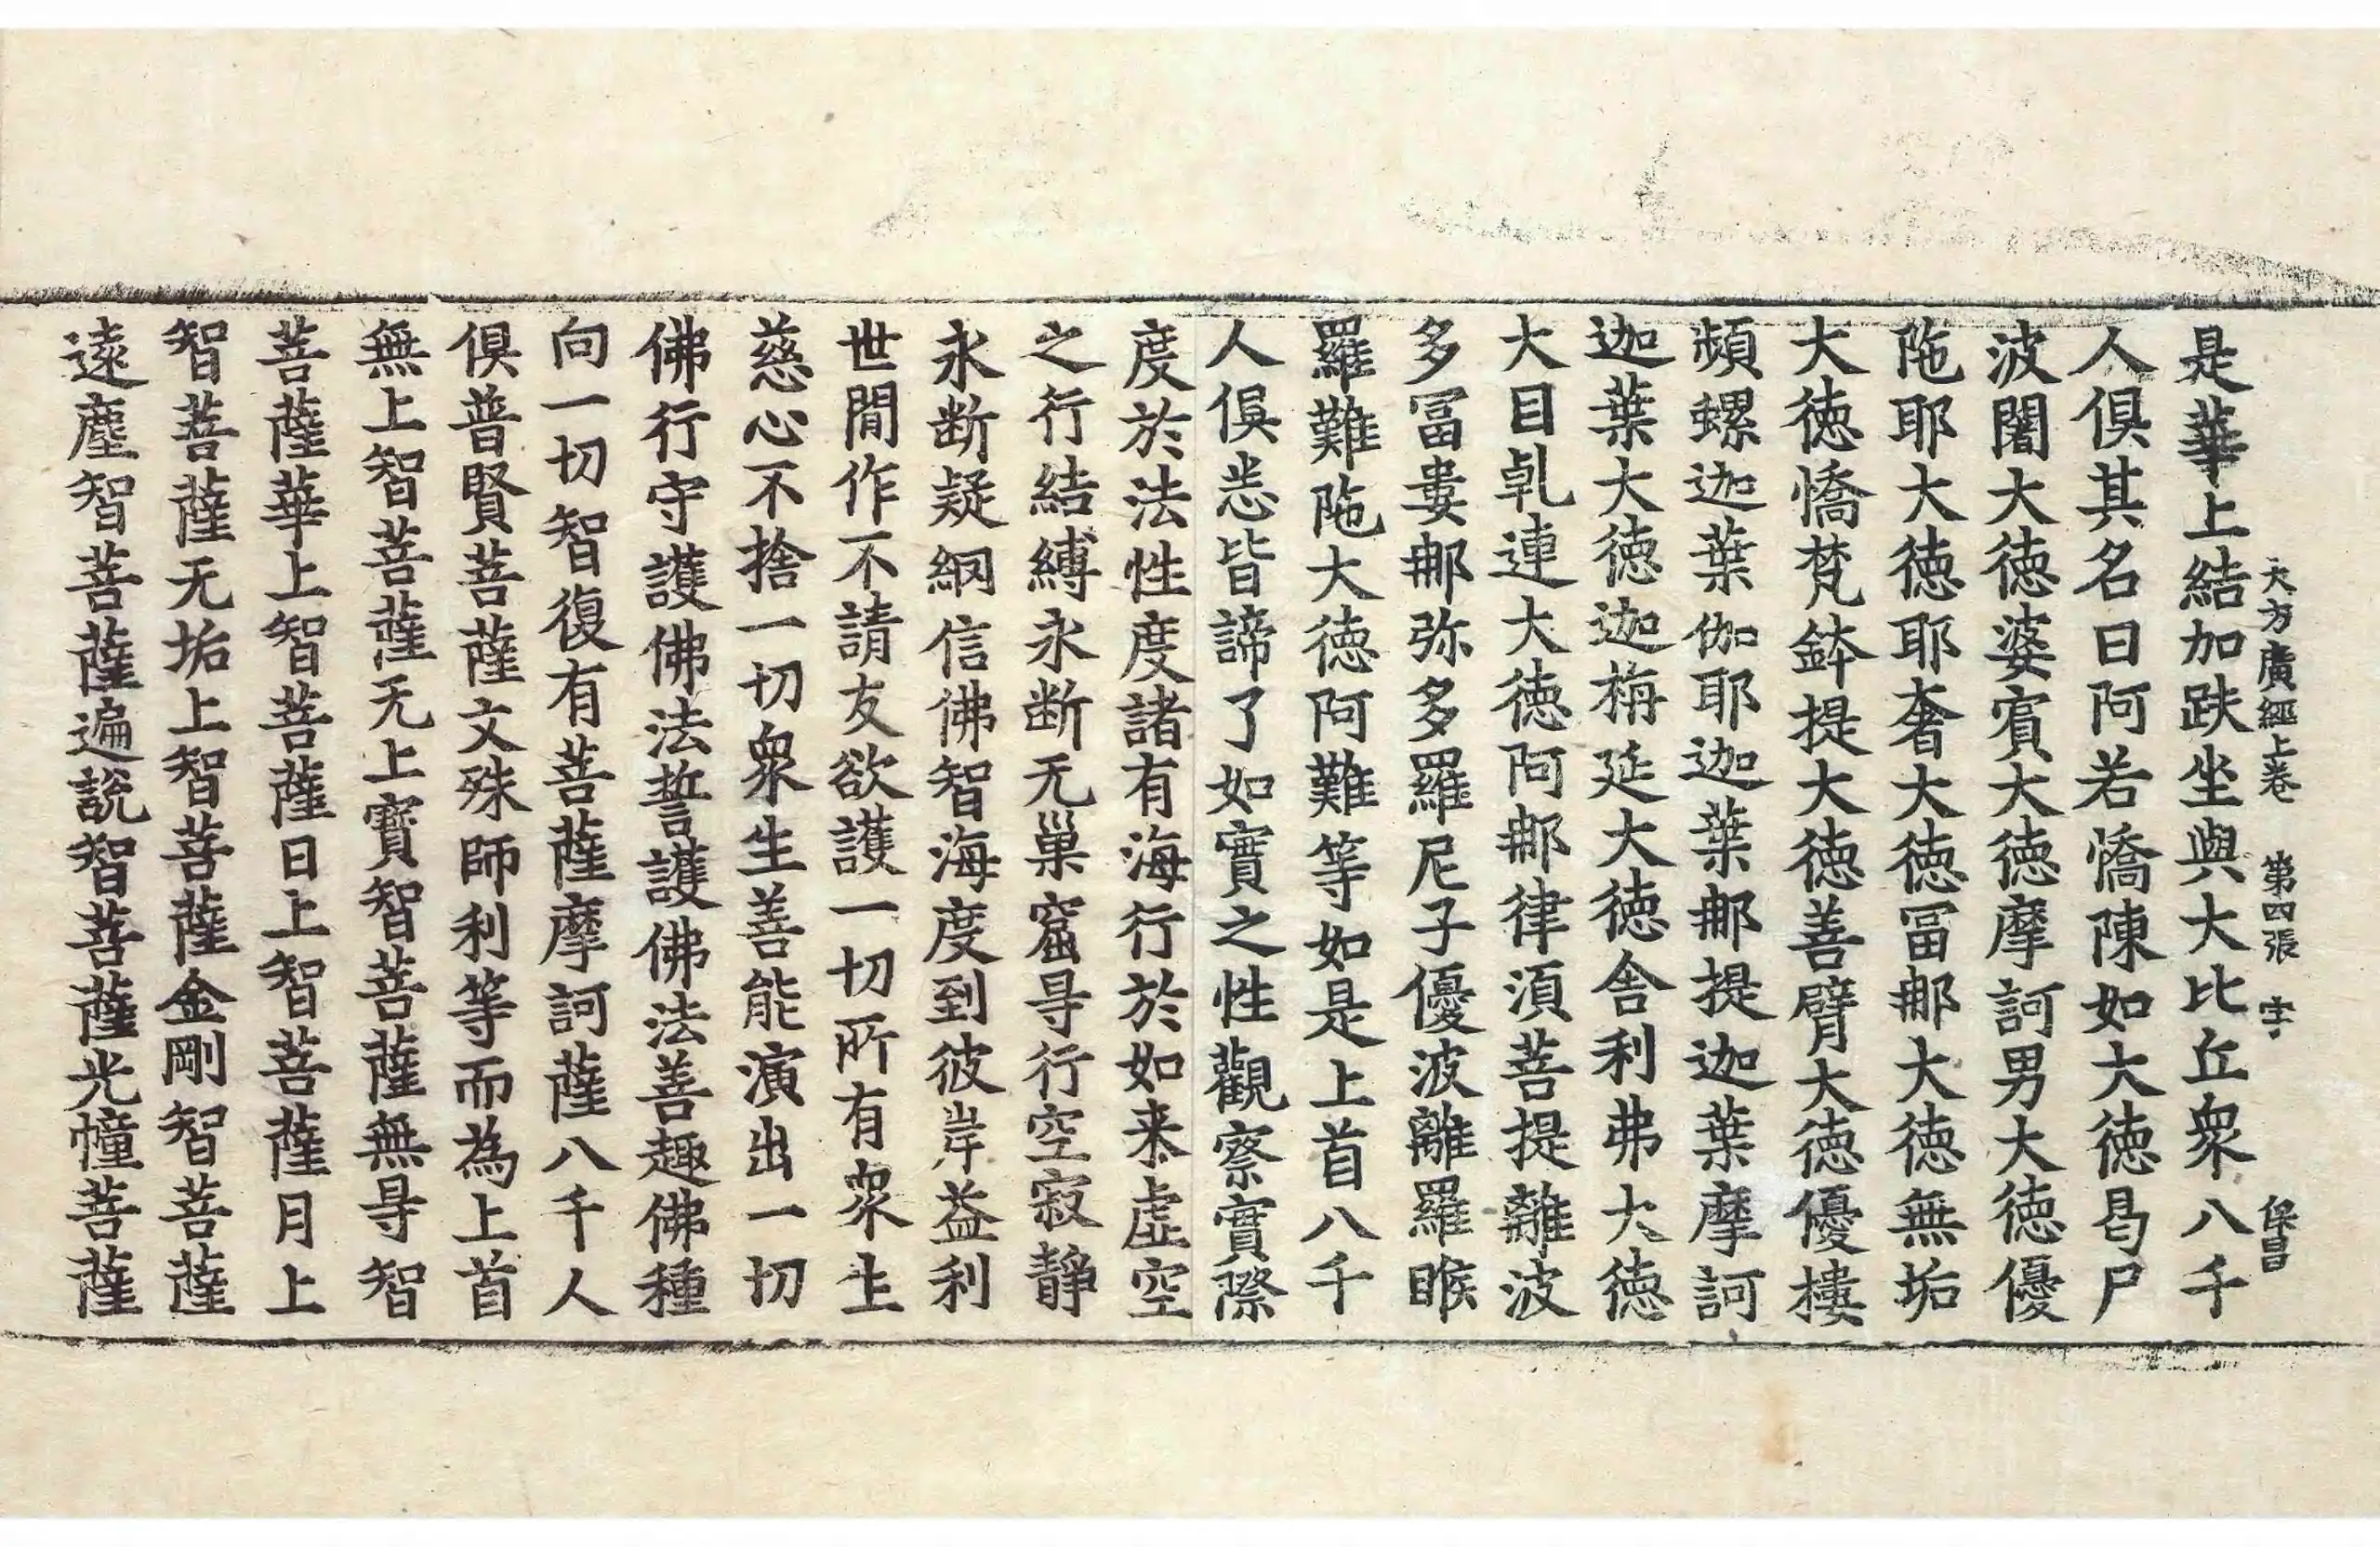 大方廣經上卷 第四張 字 保昌
是華上結加趺坐與大比丘衆八千
人俱其名曰阿若憍陳如大德曷尸
波闍大德婆賔大德摩訶男大德優
陁耶大德耶奢大德冨郍大德無垢
大德憍梵鉢提大德善臂大德優樓
頻螺迦葉伽耶迦葉郍提迦葉摩訶
迦葉大德迦栴延大德舎利弗大德
大目乹連大德阿郍律湏菩提離波
多冨婁郍弥多羅尼子優波離羅睺
羅難陁大德阿難等如是上首八千
人俱悉皆諦了如實之性觀察實際
度於法性度諸有海行於如来虛空
之行結縛永断无巢窟㝵行空寂静
永断疑網信佛智海度到彼岸益利
世間作不請友欲護一切所有衆生
慈心不捨一切衆生善能演出一切
佛行守護佛法誓護佛法善趣佛種
向一切智復有菩薩摩訶薩八千人
俱普賢菩薩文殊師利等而為上首
無上智菩薩无上寳智菩薩無㝵智
菩薩華上智菩薩日上智菩薩月上
智菩薩无垢上智菩薩金剛智菩薩
遠塵智菩薩遍説智菩薩光幢菩薩